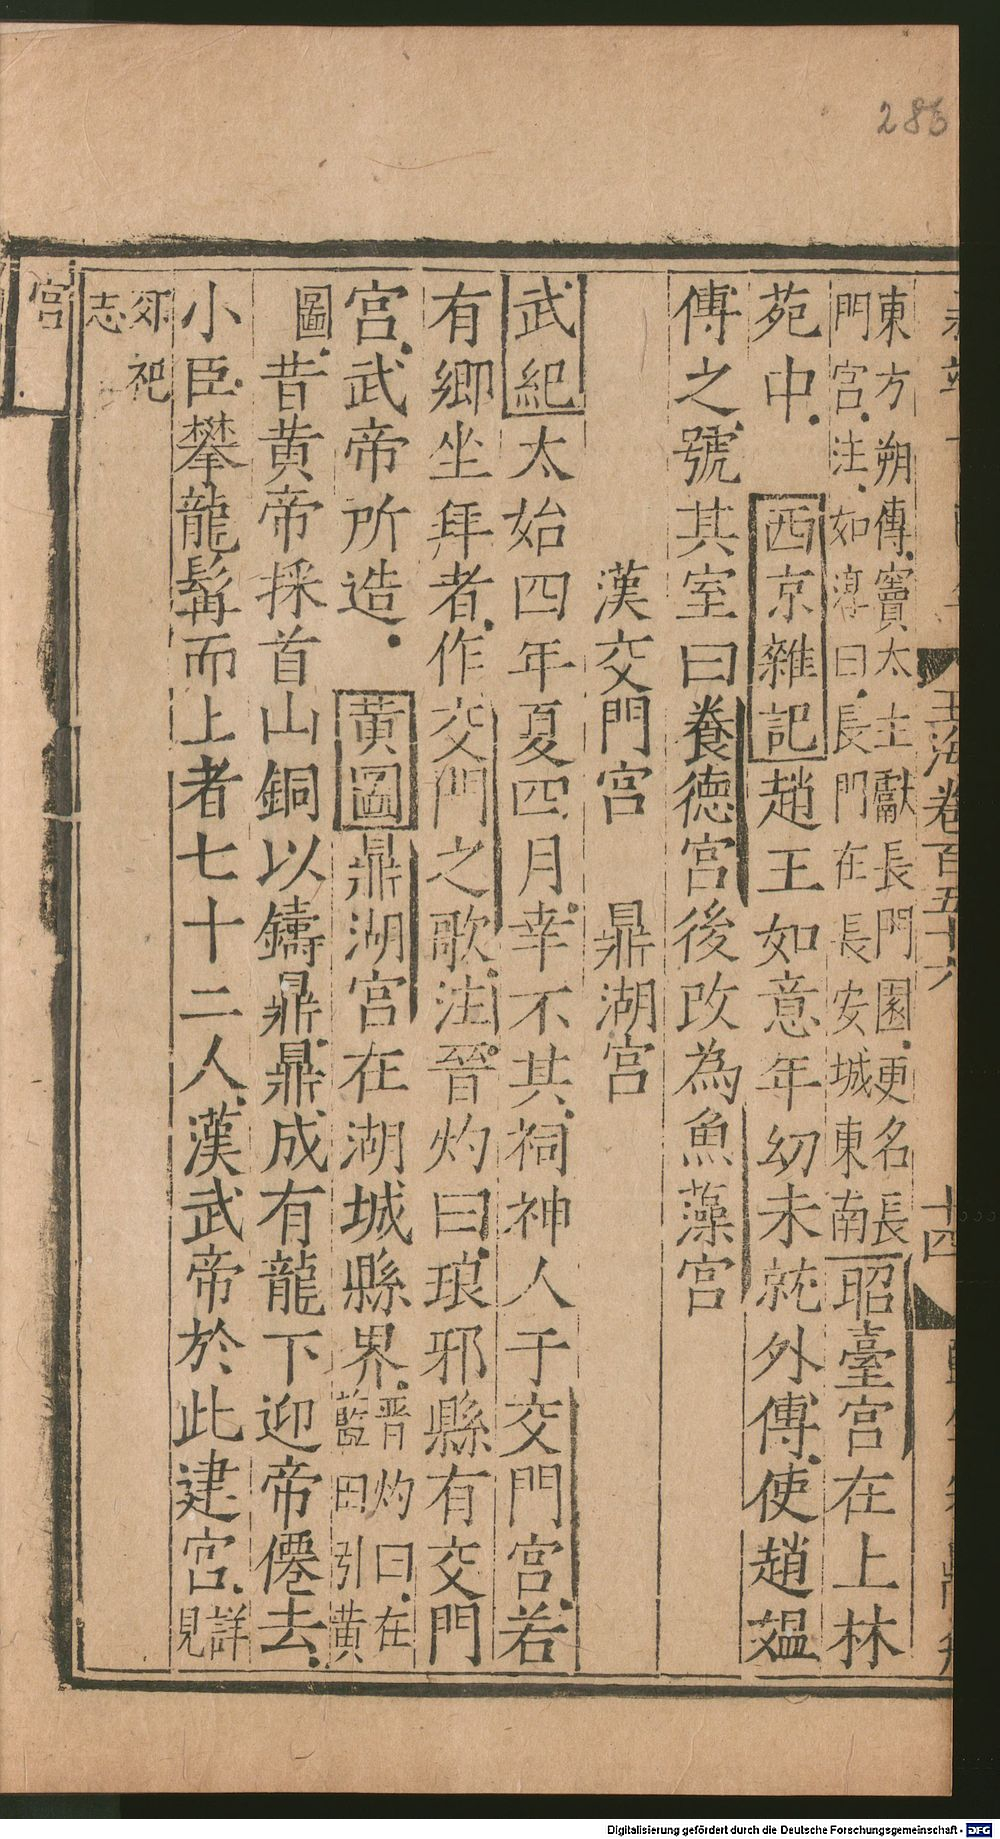 286
玉海卷百五十六
十四
東方朔傳竇太主獻長門園更名長
門宮注如淳曰長門在長安城東南昭臺宮在上林
苑中西京雜記趙王如意年幼未就外傅使趙媼
傅之號其室曰養德宮後改為魚藻宮
漢交門宮 鼎湖宮
武紀太始四年夏四月幸不其祠神人于交門宮若
有鄉坐拜者作交門之歌注晉灼曰琅邪縣有交門
宮武帝所造黃圖鼎湖宮在湖城縣界晉灼曰在
藍田引黃
圖昔黃帝採首山銅以鑄鼎鼎成有龍下迎帝僊去
小臣攀龍髯而上者七十二人漢武帝於此建宮詳
見
郊祀
志
宮
Digitalisierung gefördert durch die Deutsche Forschungsgemeinschaft - DFG